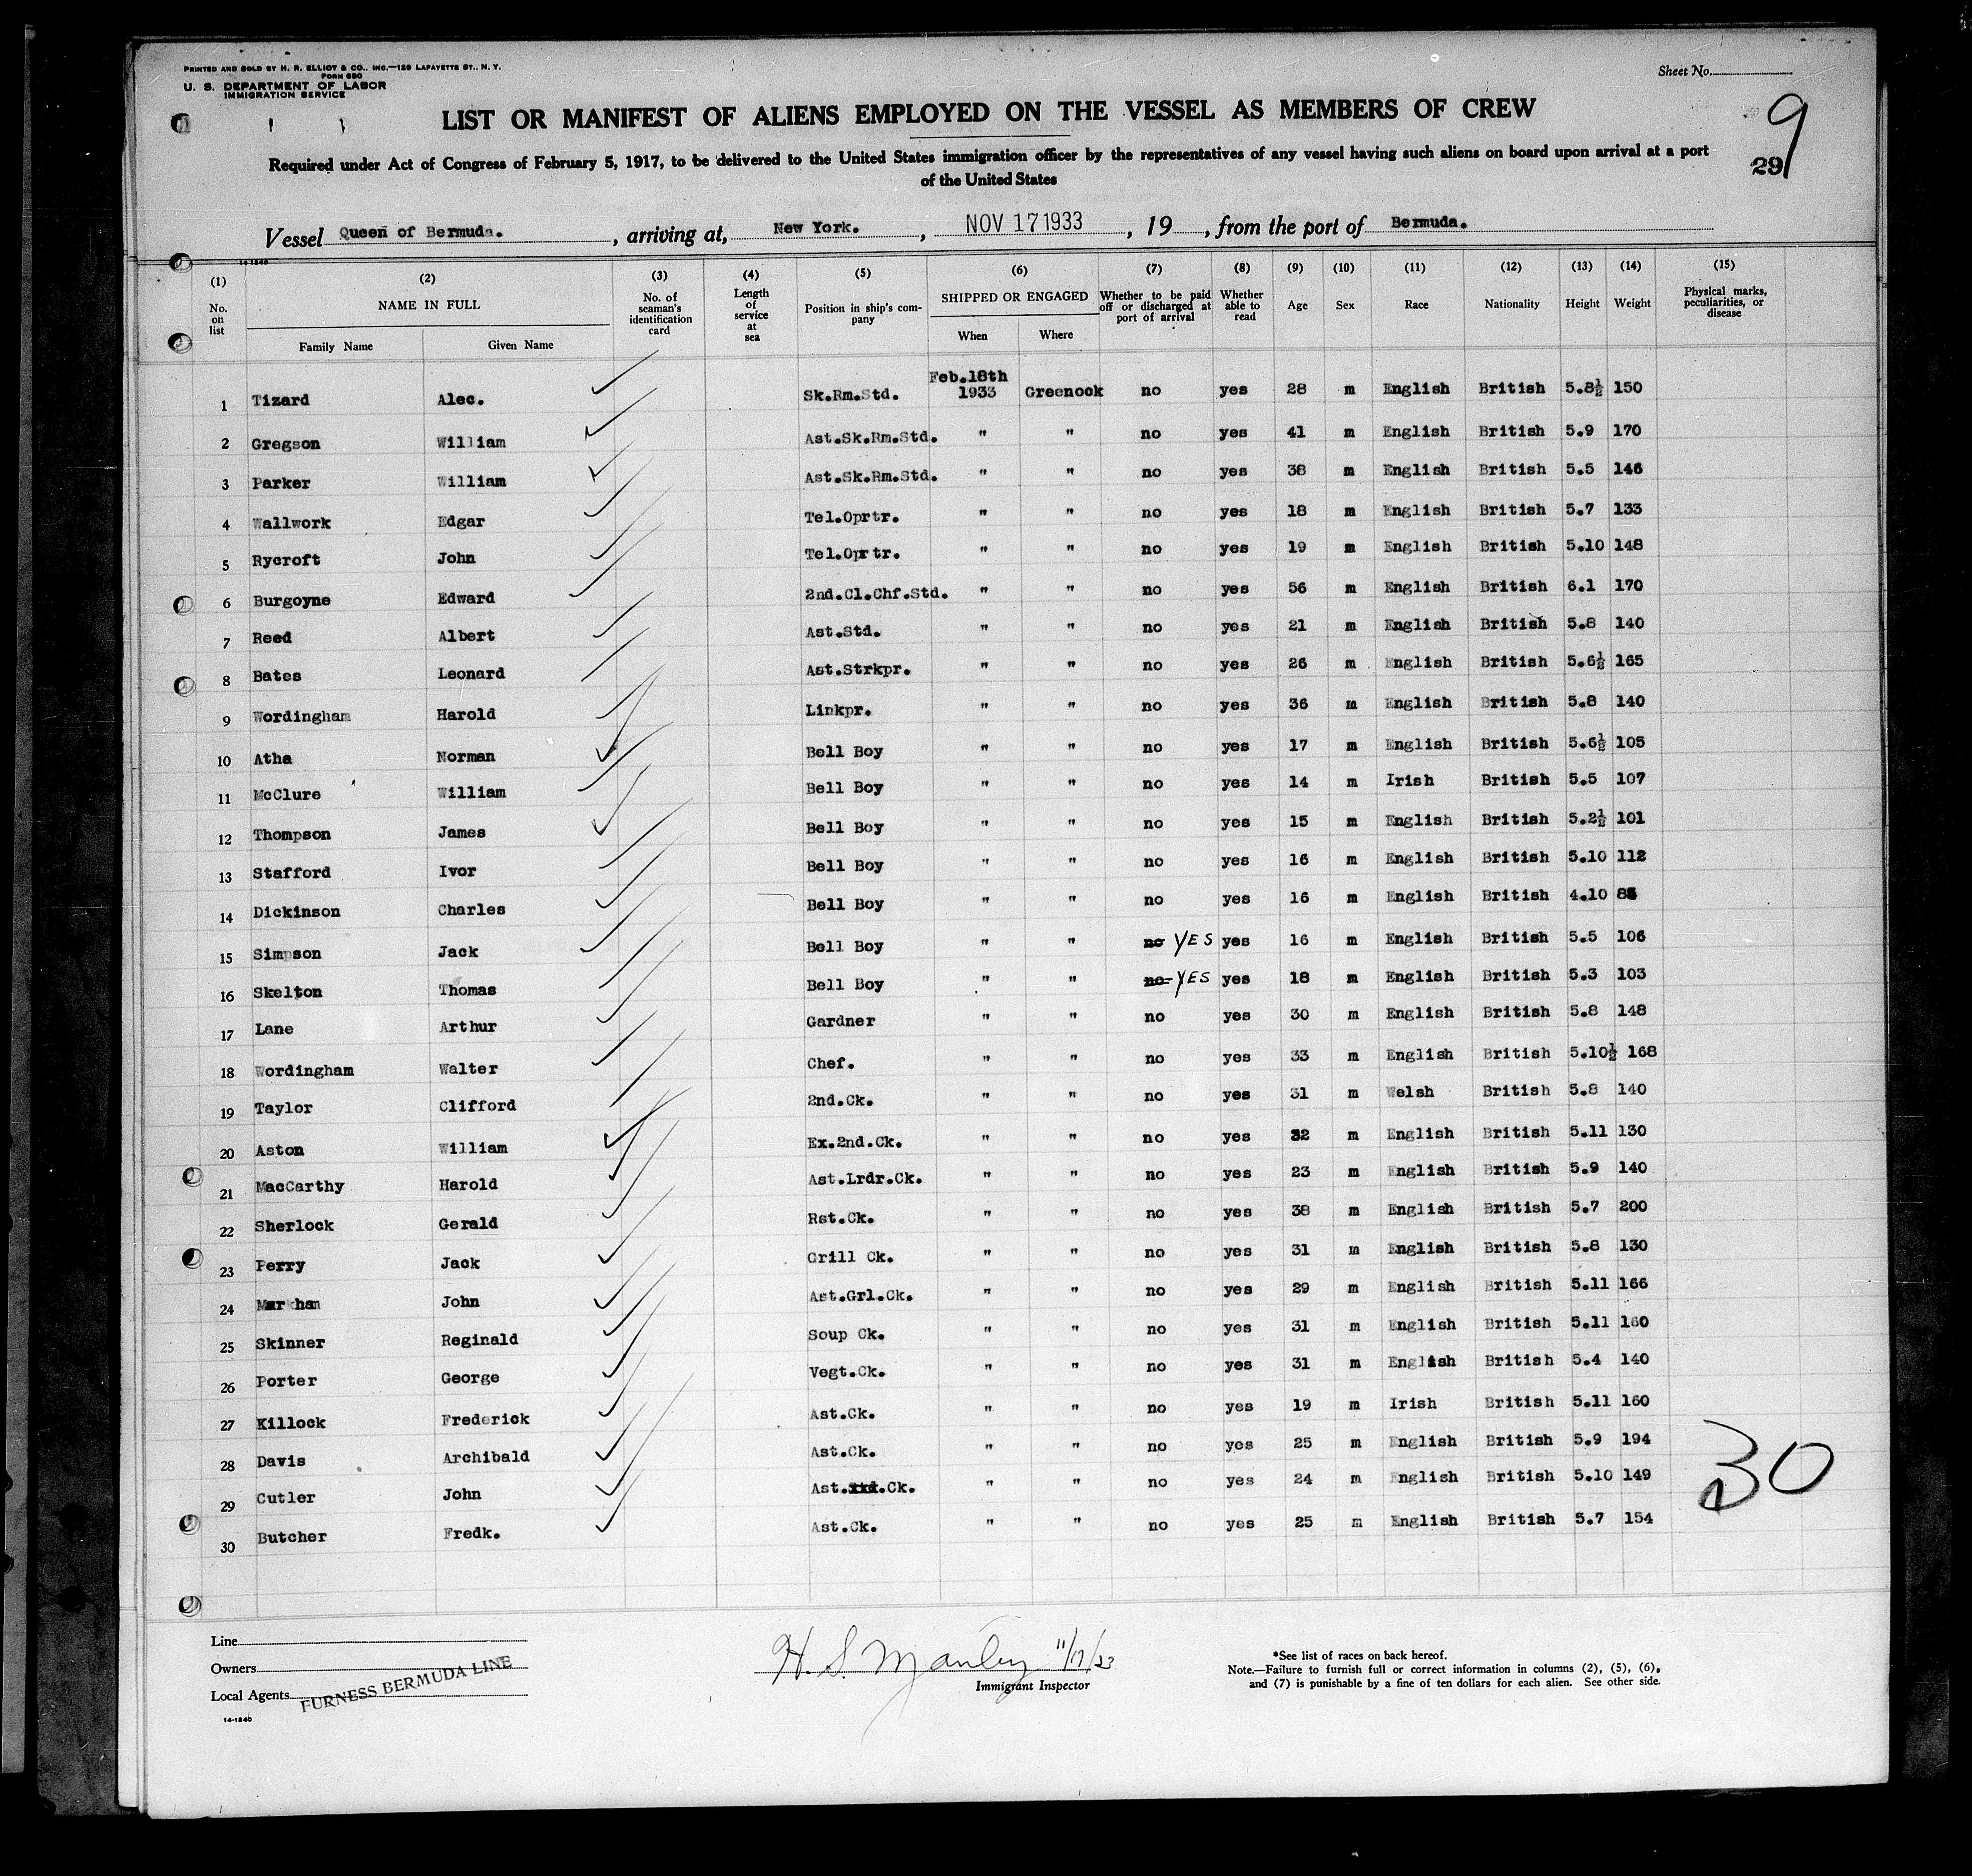 PRINTED AND SOLD BY H. R. ELLIOT & CO., INC.—129 LAFAYETTE ST., N. Y.
FORM 680
U. S. DEPARTMENT OF LABOR
IMMIGRATION SERVICE
Sheet No.
LIST OR MANIFEST OF ALIENS EMPLOYED ON THE VESSEL AS MEMBERS OF CREW
9
Required under Act of Congress of February 5, 1917, to be delivered to the United States immigration officer by the representatives of any vessel having such aliens on board upon arrival at a port
of the United States
29
Vessel Queen of Bermuda. , arriving at, New York. , NOV 17 1933 , 19 , from the port of Bermuda.
14-1240
(1) (2) (3) (4) (5) (6) (7) (8) (9) (10) (11) (12) (13) (14) (15)
No. on list NAME IN FULL Family Name Given Name No. of seaman's identification card Length of service at sea Position in ship's company SHIPPED OR ENGAGED When Where Whether to be paid off or discharged at port of arrival Whether able to read Age Sex Race Nationality Height Weight Physical marks, peculiarities, or disease
1 Tizard Alec. Sk.Rm.Std. Feb.18th 1933 Greenock no yes 28 m English British 5.8½ 150
2 Gregson William Ast.Sk.Rm.Std. " " no yes 41 m English British 5.9 170
3 Parker William Ast.Sk.Rm.Std. " " no yes 38 m English British 5.5 146
4 Wallwork Edgar Tel.Oprtr. " " no yes 18 m English British 5.7 133
5 Rycroft John Tel.Oprtr. " " no yes 19 m English British 5.10 148
6 Burgoyne Edward 2nd.Cl.Chf.Std. " " no yes 56 m English British 6.1 170
7 Reed Albert Ast.Std. " " no yes 21 m English British 5.8 140
8 Bates Leonard Ast.Strkpr. " " no yes 26 m English British 5.6½ 165
9 Wordingham Harold Linkpr. " " no yes 36 m English British 5.8 140
10 Atha Norman Bell Boy " " no yes 17 m English British 5.6½ 105
11 McClure William Bell Boy " " no yes 14 m Irish British 5.5 107
12 Thompson James Bell Boy " " no yes 15 m English British 5.2½ 101
13 Stafford Ivor Bell Boy " " no yes 16 m English British 5.10 112
14 Dickinson Charles Bell Boy " " no yes 16 m English British 4.10
15 Simpson Jack Bell Boy " " no YES yes 16 m English British 5.5 106
16 Skelton Thomas Bell Boy " " no YES yes 18 m English British 5.3 103
17 Lane Arthur Gardner " " no yes 30 m English British 5.8 148
18 Wordingham Walter Chef. " " no yes 33 m English British 5.10½ 168
19 Taylor Clifford 2nd.Ck. " " no yes 31 m Welsh British 5.8 140
20 Aston William Ex.2nd.Ck. " " no yes 32 m English British 5.11 130
21 MacCarthy Harold Ast.Lrdr.Ck. " " no yes 23 m English British 5.9 140
22 Sherlock Gerald Rst.Ck. " " no yes 38 m English British 5.7 200
23 Perry Jack Grill Ck. " " no yes 31 m English British 5.8 130
24 Markham John Ast.Grl.Ck. " " no yes 29 m English British 5.11 166
25 Skinner Reginald Soup Ck. " " no yes 31 m English British 5.11 160
26 Porter George Vegt.Ck. " " no yes 31 m English British 5.4 140
27 Killock Frederick Ast.Ck. " " no yes 19 m Irish British 5.11 160
28 Davis Archibald Ast.Ck. " " no yes 25 m English British 5.9 194
29 Cutler John Ast. .Ck. " " no yes 24 m English British 5.10 149
30 Butcher Fredk. Ast.Ck. " " no yes 25 m English British 5.7 154
30
Line
Owners
Local Agents FURNESS BERMUDA LINE
14-1240
H. S. Manley 11/17/33
Immigrant Inspector
*See list of races on back hereof.
Note.—Failure to furnish full or correct information in columns (2), (5), (6),
and (7) is punishable by a fine of ten dollars for each alien. See other side.